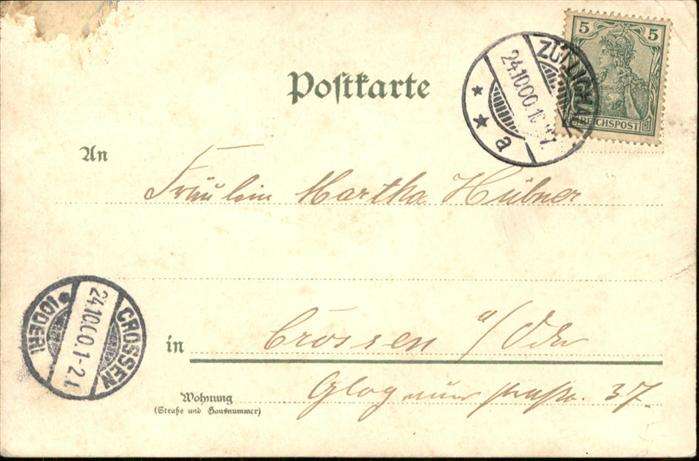 Postkarte
5 5
REICHSPOST
ZÜLLICHAU
24.10.00.1
* * a
An
Fräulein Martha Hübner
CROSSEN
24.10.00.1-2
(ODER)
in Crossen a/Oder
Wohnung
(Straße und Hausnummer)
Glogauer straße. 37.